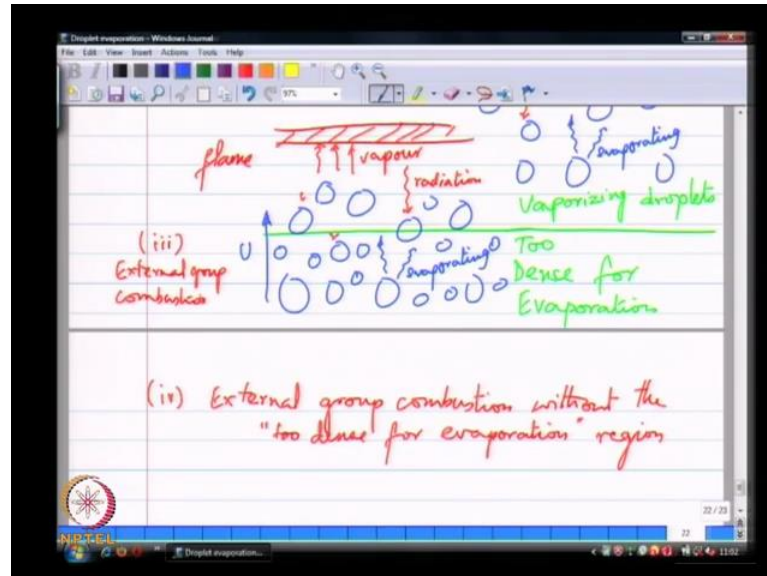 Droplet evaporation - Windows Journal
File Edit View Insert Actions Tools Help
B I
97%
flame
vapour
radiation
evaporating
Vaporizing droplets
(iii)
External group
combustion
U
evaporating
Too
Dense for
Evaporation
(iv) External group combustion without the
"too dense for evaporation" region
22 / 23
22
NPTEL
Droplet evaporation...
11:02